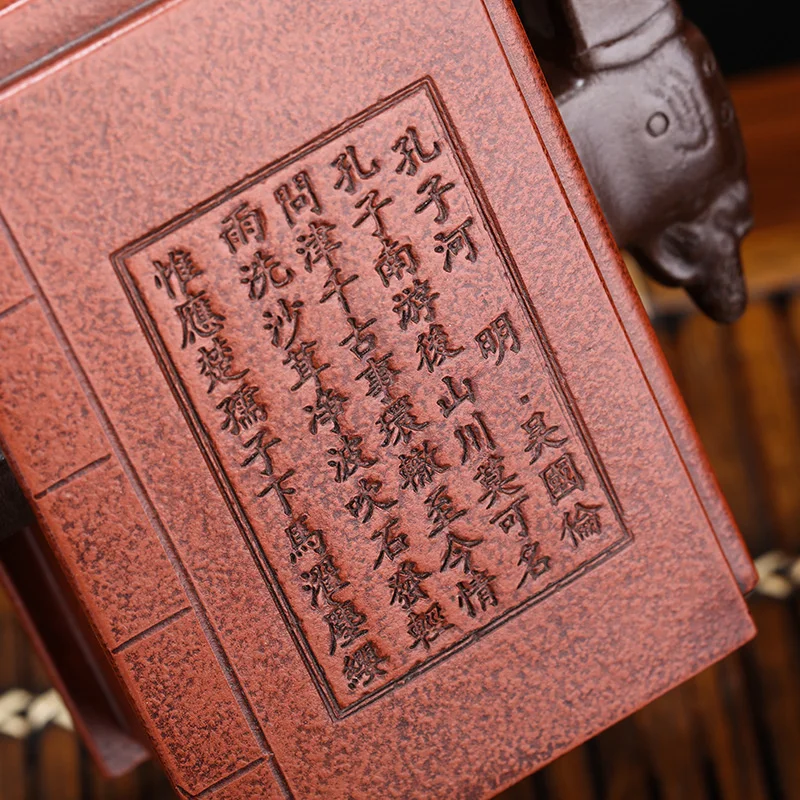 孔子河 明·吳國倫
孔子南游後山川莫可名
問津千古事環轍至今情
雨洗沙茸净波吹石發輕
惟應楚孺子下馬濯塵纓